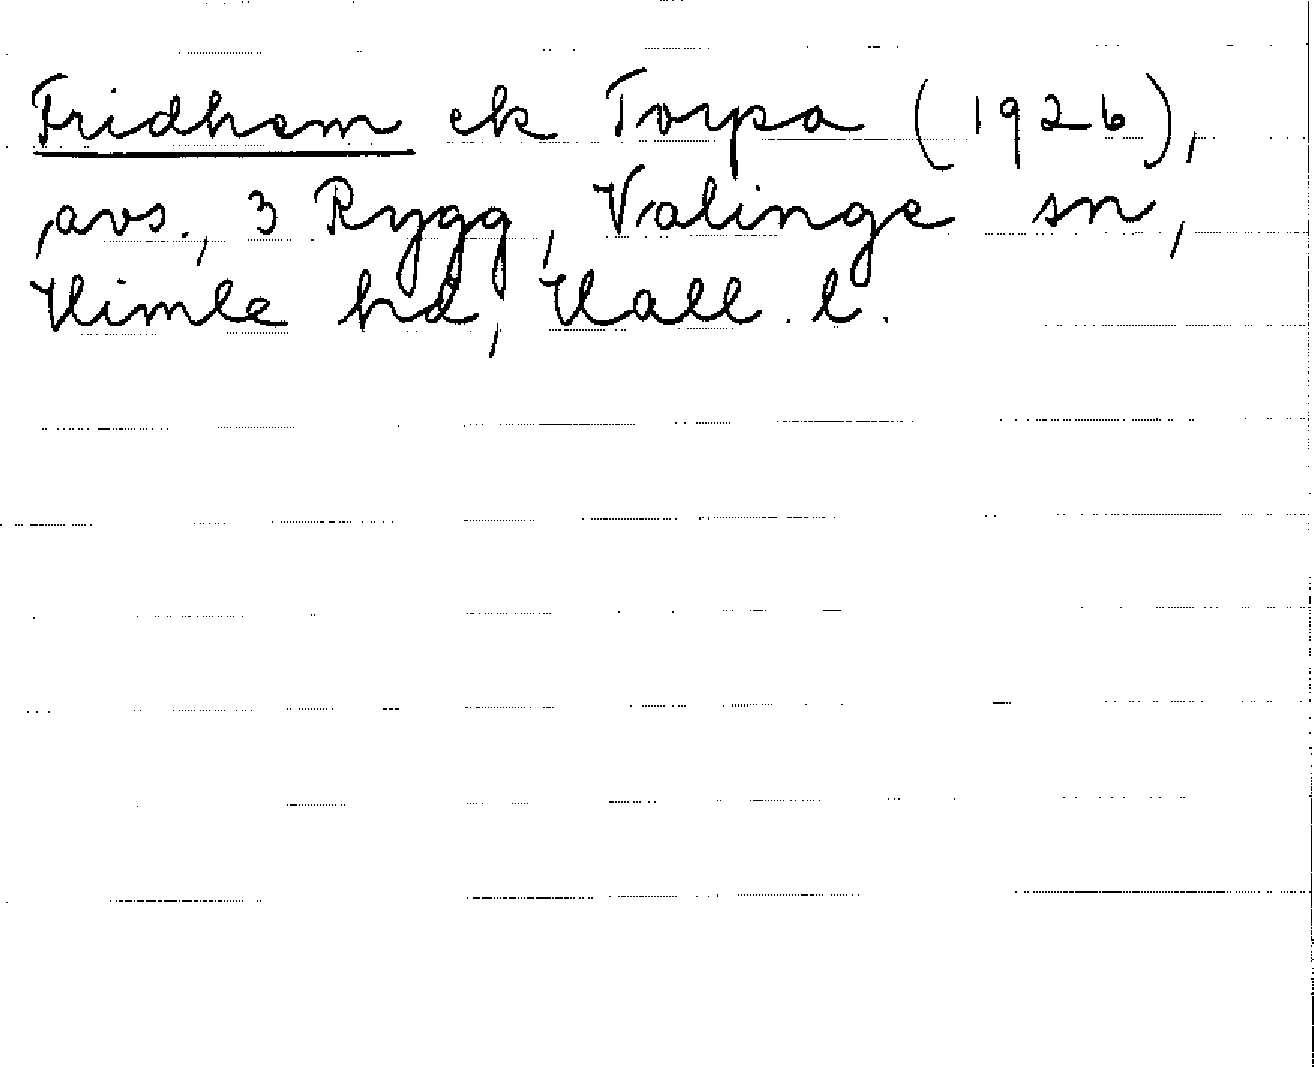 Fridhem ek Torpa (1926),
avs., 3 Rygg, Valinge sn,
Himle hd, Hall. l.